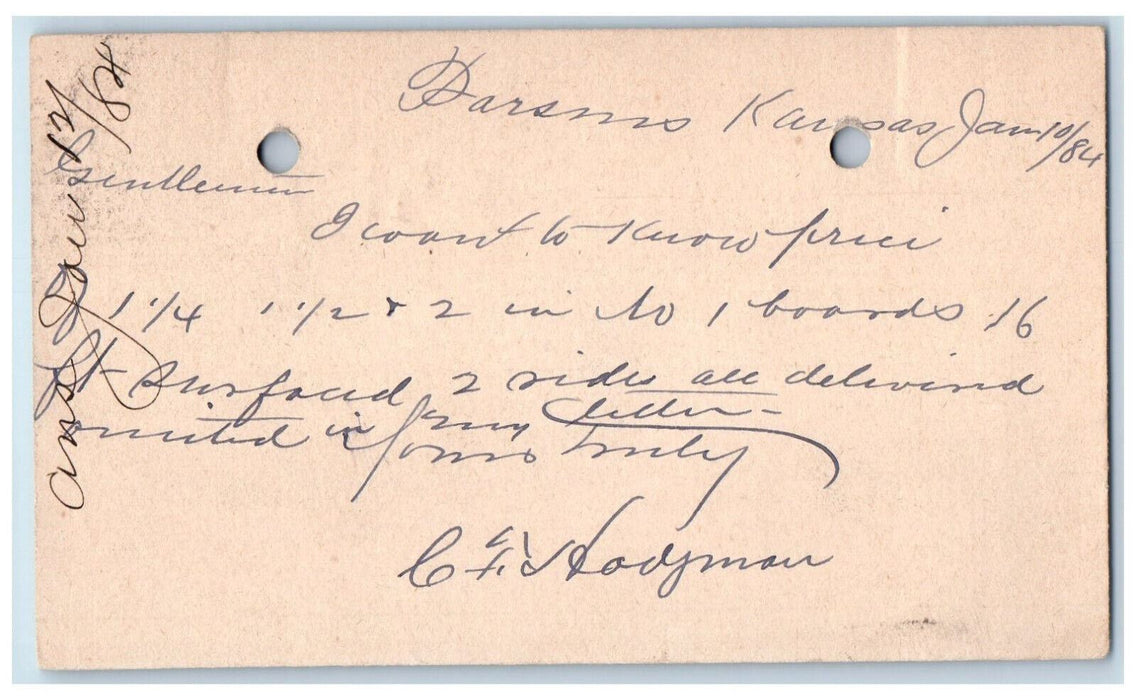 Parsons Kansas Jan 10/84
Gentlemen
I want to know price
1 1/4 1 1/2 & 2 in No 1 boards 16
ft surfaced 2 sides all delivered
omitted in my letter
Yours truly
C Hodgman
ans Jan 12/84